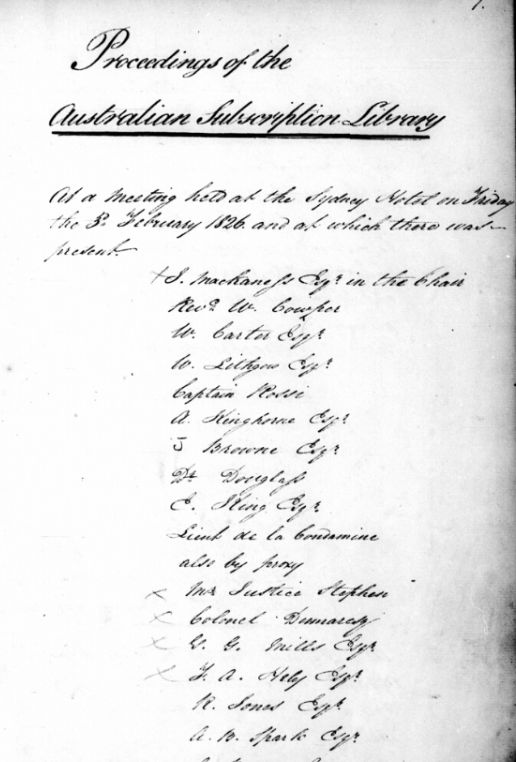 Proceedings of the
Australian Subscription Library
At a Meeting held at the Sydney Hotel on Friday
the 3d February 1826 and at which there was
present
J. Mackaness Esqr in the Chair
Revd W. Cowper
W. Carter Esqr
W. Lithgow Esqr
Captain Rossi
A. Kinghorne Esqr
J Browne Esqr
Dr Douglass
King Esqr
Lieut de la Condamine
also by proxy
Mr Justice Stephen
Colonel Dumaresq
G. Mills Esqr
F. A. Hely Esqr
R. Jones Esqr
A. B. Spark Esqr